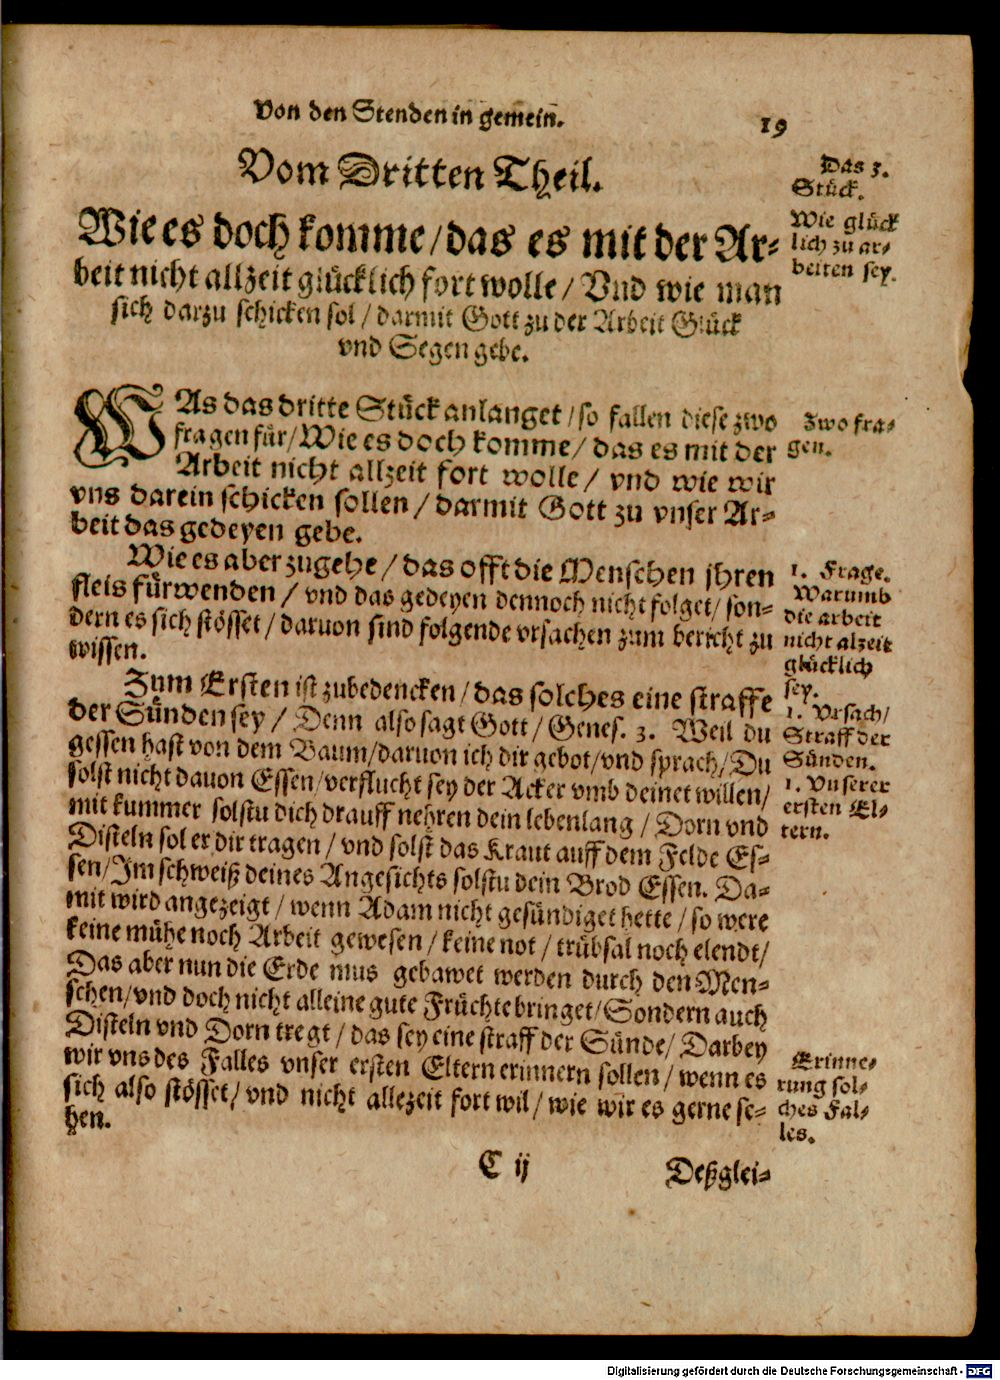 Von den Stenden in gemein.
19
Vom Dritten Theil.
Das 3.
Stück.
Wie es doch komme/das es mit der Ar-
beit nicht allzeit glücklich fort wolle/ Vnd wie man
sich darzu schicken sol/ darmit Gott zu der Arbeit Glück
vnd Segen gebe.
Wie glück
lich zu ar-
beiten sey.
WAs das dritte Stück anlanget/so fallen diese zwo
fragen für/Wie es doch komme/das es mit der
Arbeit nicht allzeit fort wolle/ vnd wie wir
vns darein schicken sollen/darmit Gott zu vnser Ar-
beit das gedeyen gebe.
Zwo fra-
gen.
Wie es aber zugehe/das offt die Menschen jhren
fleis fürwenden/ vnd das gedeyen dennoch nicht folget/ son-
dern es sich stösset/daruon sind folgende vrsachen zum bericht zu
wissen.
1. Frage.
Warumb
die arbeit
nicht alzeit
glücklich
sey.
Zum Ersten ist zubedencken/das solches eine straffe
der Sünden sey/ Denn also sagt Gott/Genes. 3. Weil du
gessen hast von dem Baum/daruon ich dir gebot/vnd sprach/Du
solst nicht dauon Essen/verflucht sey der Acker vmb deinet willen/
mit kummer solstu dich drauff nehren dein lebenlang/ Dorn vnd
Disteln sol er dir tragen/ vnd solst das Kraut auff dem Felde Es-
sen/Im schweiß deines Angesichts solstu dein Brod Essen. Da-
mit wird angezeigt/ wenn Adam nicht gesündiget hette/so were
keine mühe noch Arbeit gewesen/keine not/ trübsal noch elendt/
Das aber nun die Erde mus gebawet werden durch den Men-
schen/vnd doch nicht alleine gute Früchte bringet/Sondern auch
Disteln vnd Dorn tregt/das sey eine straff der Sünde/ Darbey
wir vns des Falles vnser ersten Eltern erinnern sollen/wenn es
sich also stösset/ vnd nicht allezeit fort wil/wie wir es gerne se-
hen.
1. Vrsach/
Straff der
Sünden.
1. Vnserer
ersten El-
tern.
Erinne-
rung sol-
ches Fal-
les.
C ij
Deßglei-
Digitalisierung gefördert durch die Deutsche Forschungsgemeinschaft - DFG